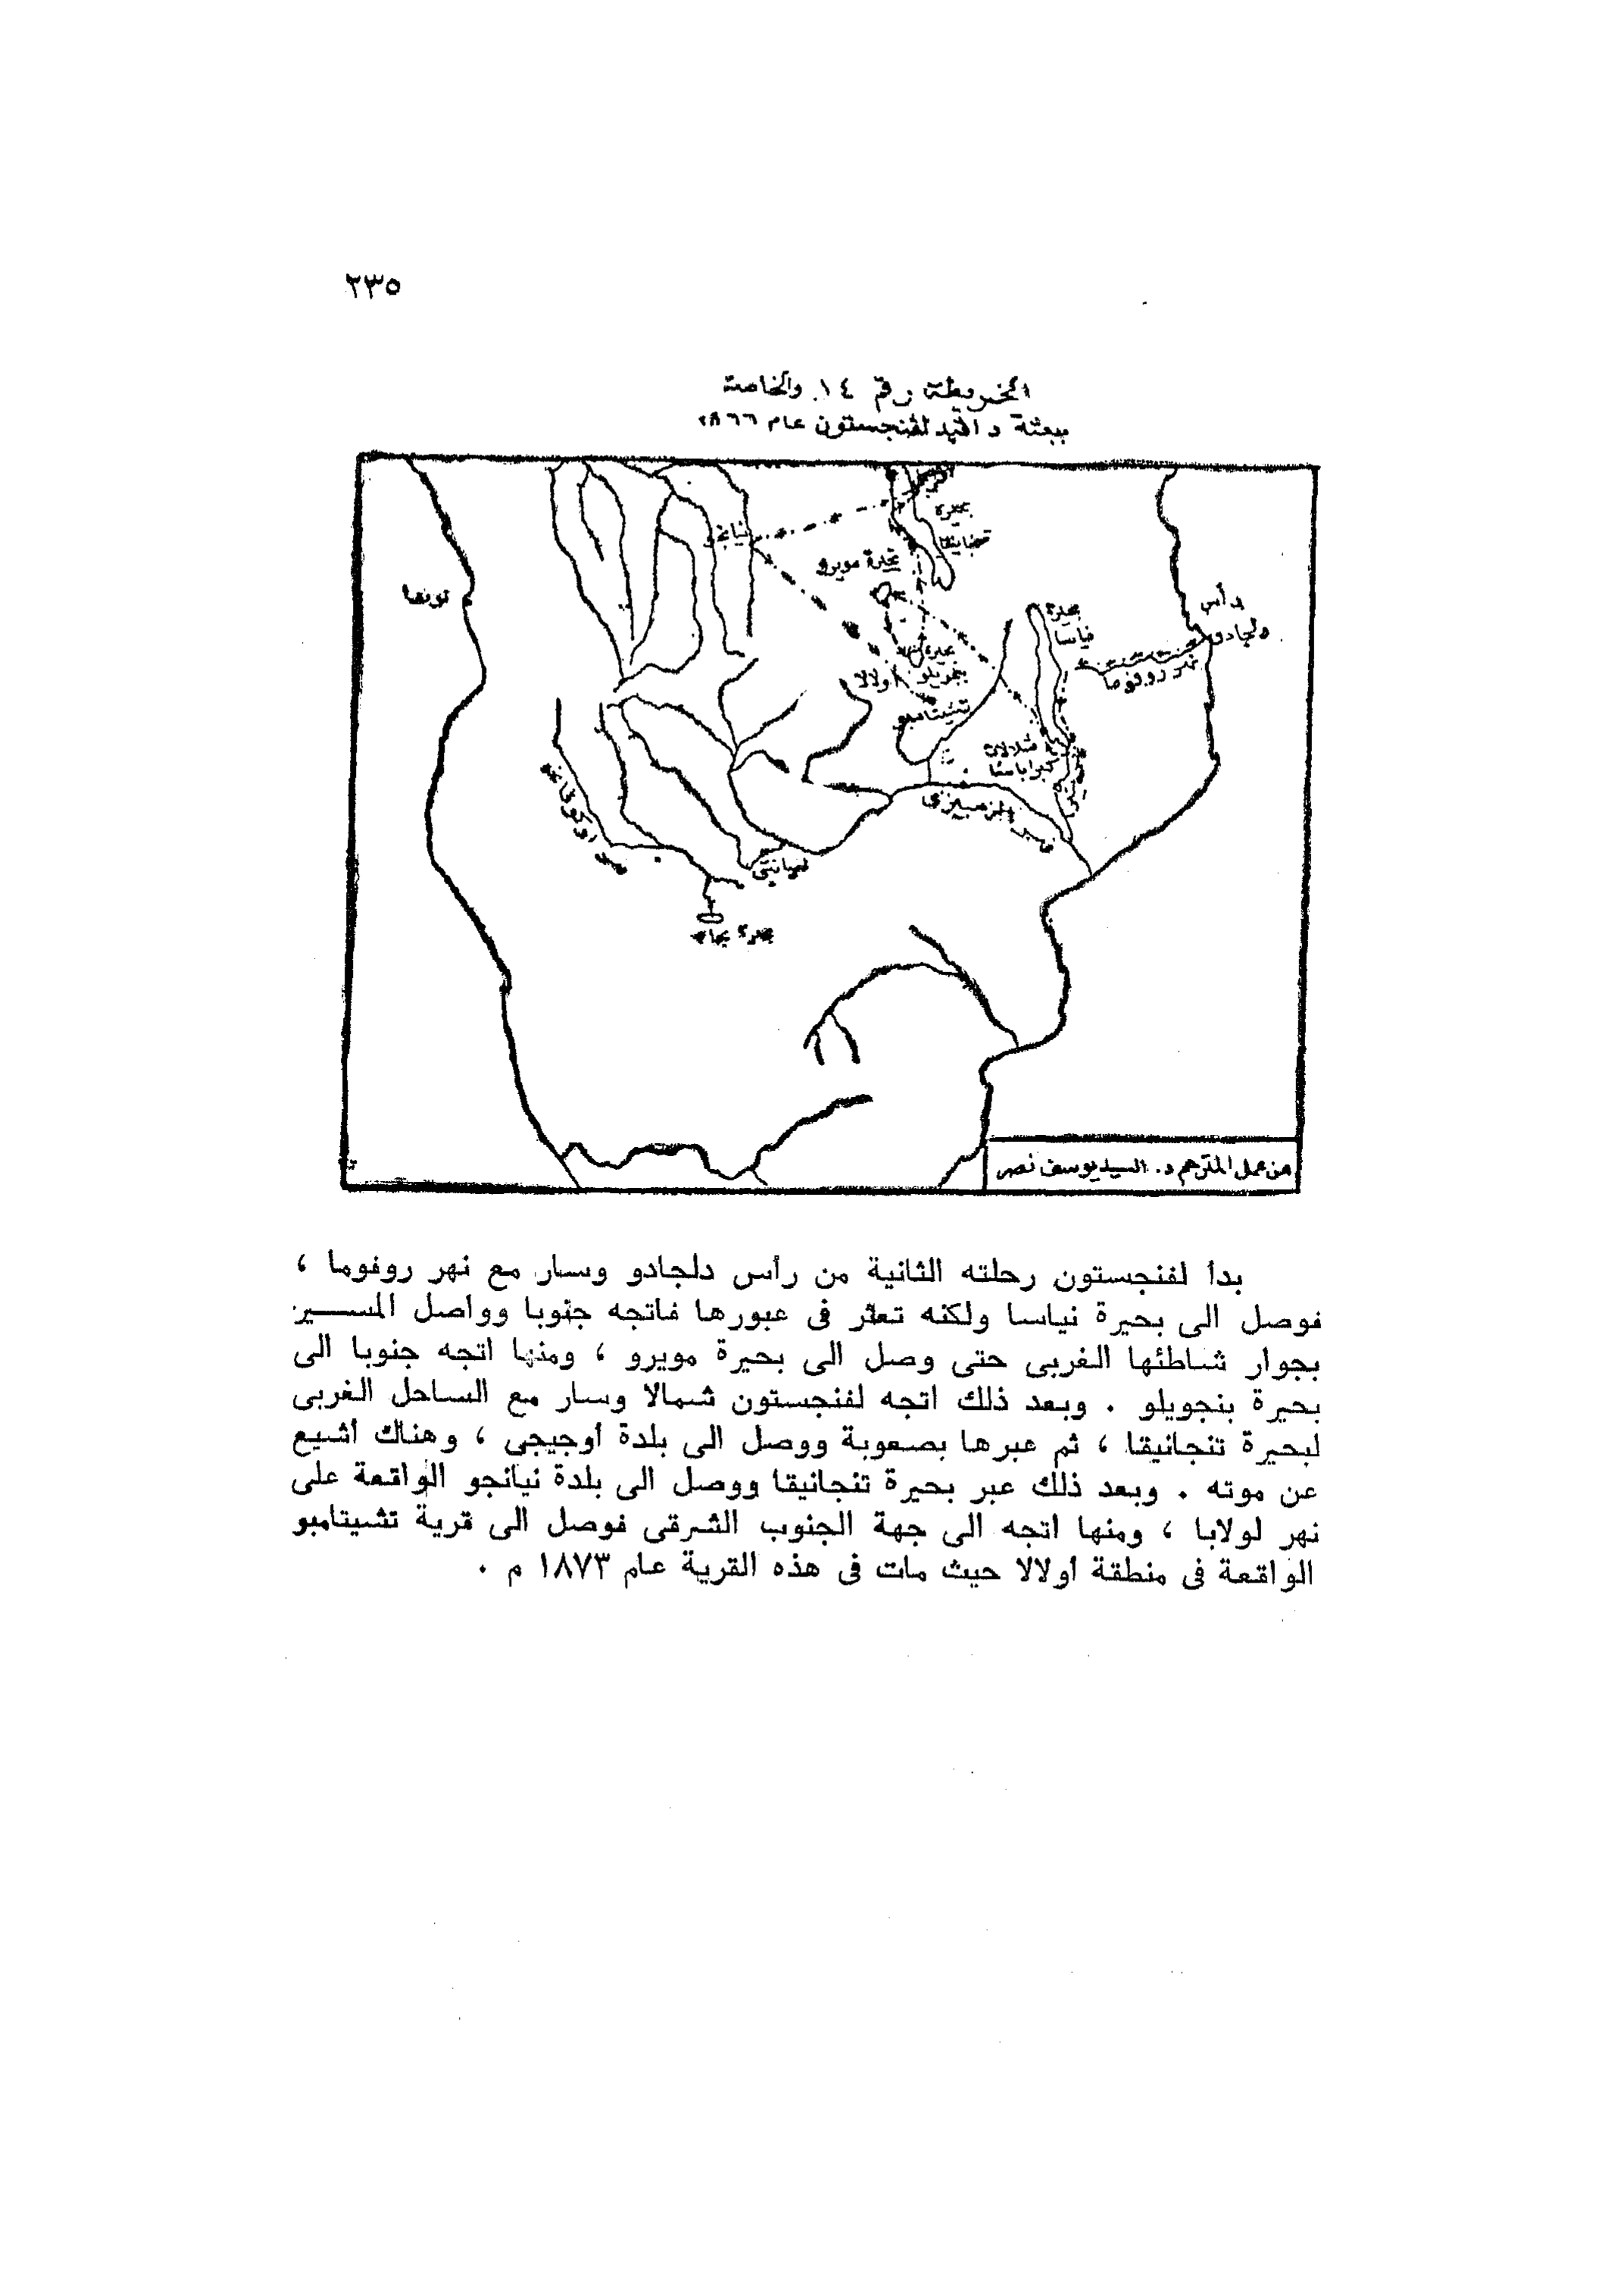 ٢٣٥
الخريطة رقم ١٤ والخاصة
ببعثة دافيد لفنجستون عام ١٨٦٦
نيانجو
بحيرة
تنجانيقا
بحيرة مويرو
بحيرة
نياسا
رأس
دلجادو
نهر روفوما
بحيرة
بنجويلو
أولالا
تشيتامبو
شلالات
كبراباسا
نهر الزمبيزى
نهر أوكوفانجو
لينيانتى
من عمل المترجم د. السيد يوسف نصر
بدأ لفنجستون رحلته الثانية من رأس دلجادو وسار مع نهر روفوما ،
فوصل الى بحيرة نياسا ولكنه تعثر فى عبورها فاتجه جنوبا وواصل المسير
بجوار شاطئها الغربى حتى وصل الى بحيرة مويرو ، ومنها اتجه جنوبا الى
بحيرة بنجويلو . وبعد ذلك اتجه لفنجستون شمالا وسار مع الساحل الغربى
لبحيرة تنجانيقا ، ثم عبرها بصعوبة ووصل الى بلدة أوجيجى ، وهناك أشيع
عن موته . وبعد ذلك عبر بحيرة تنجانيقا ووصل الى بلدة نيانجو الواقعة على
نهر لولابا ، ومنها اتجه الى جهة الجنوب الشرقى فوصل الى قرية تشيتامبو
الواقعة فى منطقة أولالا حيث مات فى هذه القرية عام ١٨٧٣ م .